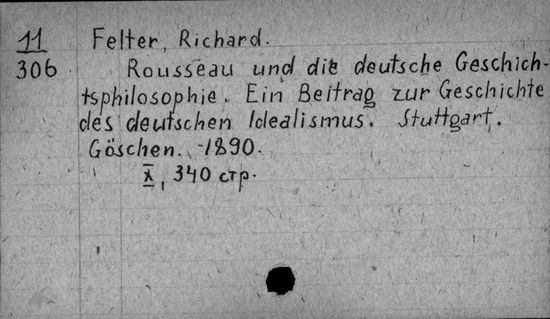 11 Felter, Richard.
306 Rousseau und die deutsche Geschich-
tsphilosophie. Ein Beitrag zur Geschichte
des deutschen Idealismus. Stuttgart.
Göschen. 1890.
X, 340 стр.